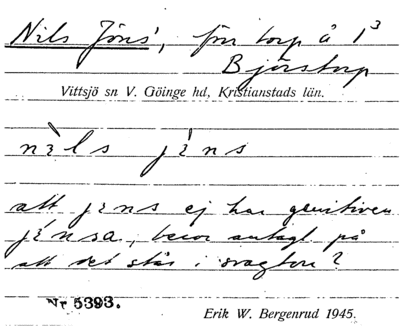 Nils Jöns', förr torp å 1³
Björstorp
Vittsjö sn V. Göinge hd, Kristianstads län.
nèls jèns
att jens ej har genitiven
jénsa, beror antagl på
att det står i svagton?
Nr 5393.
Erik W. Bergenrud 1945.